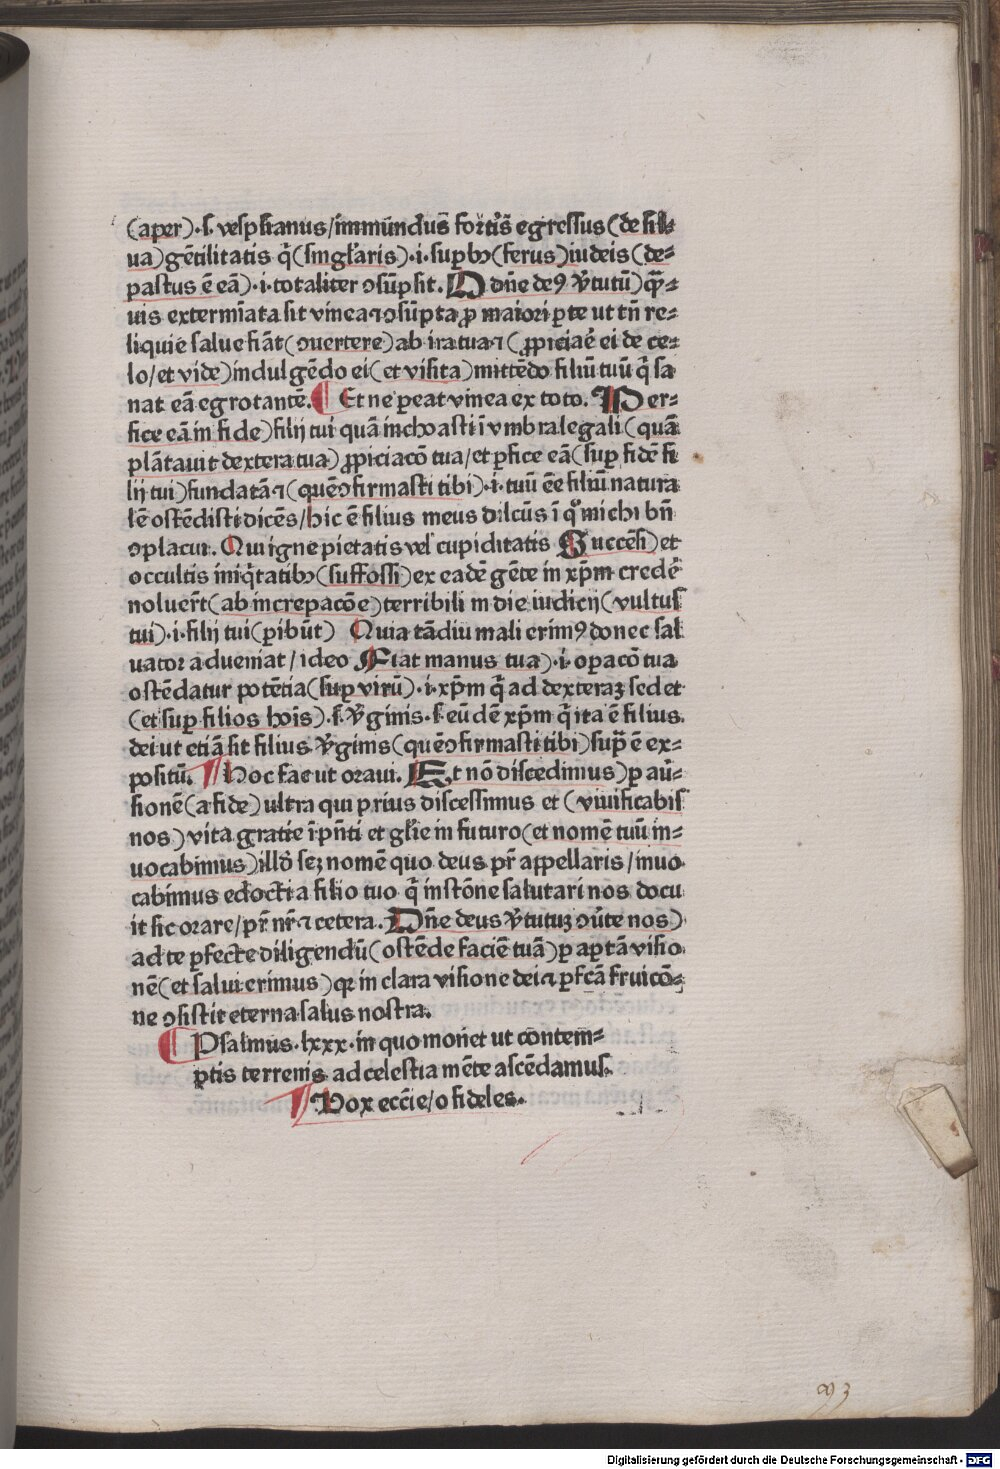 (aper).ſ. veſpſianus/immundus̄ fortis̄ egreſſus (de ſil⸗
ua) gētilitatis q̄ (ſingl'aris).i.ſupbꝫ (ferus) iudeis (de⸗
paſtus ē eā).i. totaliter ꝯſūpſit. O dn̄e de9 v̄tutū) qᷓ⸗
uis extermīata ſit vinea ⁊ ꝯſūpta ꝓ maiori ꝑte ut tn̄ re⸗
liquie ſalue fiāt (ꝯuertere) ab ira tua ⁊ (ꝓpiciaꝰ ei de ce⸗
lo/et vide) indulgēdo ei (et viſita) mittēdo filiū tuū q̄ ſa
nat eā egrotantē. ¶ Et ne ꝑeat vinea ex toto. Per⸗
fice eā in fide) filij tui quā inchoaſti ī vmbra legali (quā
plātauit dextera tua) ꝓpiciacō tua/et ꝑfice eā (ſuꝑ fidē fi
lij tui) fundatā ⁊ (quē ꝯfirmaſti tibi).i. tuū eē filiū natura
lē oſtēdiſti dicēs/hic ē filius meus dilcūs ī qͦ michi bn̄
ꝯplacui. Qui igne pietatis vel cupiditatis Succēſi) et
occultis iniq̄tatibꝫ (ſuffoſſi) ex eadē gēte in xp̄m crede͛
noluer̄t (ab increpacōe) terribili in die iudicij (vultuſ
tui).i. filij tui (ꝑibūt) Quia tādiu mali erim9 donec ſal
uator adueniat/ideo Fiat manus tua).i. oꝑacō tua
oſtēdatur potētia (ſuꝑ virū).i. xp̄m q̄ ad dexteraꝫ ſedet
(et ſuꝑ filios hoīs).ſ. v̄ginis.ſ. eūdē xp̄m q̄ ita ē filius
dei ut etiā ſit filius v̄ginis (quē ꝯfirmaſti tibi) ſupᷓ ē ex⸗
poſitū. ¶ Hoc fac ut oraui. Et nō diſcedimus) ꝑ auͤ⸗
ſionē (a fide) ultra qui prius diſceſſimus et (viuificabiſ
nos) vita gratie ī pn̄ti et gl'ie in futuro (et nomē tuū in⸗
uocabimus) illō ſcꝫ nomē quo deus pr̄ appellaris/inuo
cabimus edocti a filio tuo q̄ inſtōne ſalutari nos docu
it ſic orare/pr̄ nr̄ ⁊ cetera. Dn̄e deus v̄tutuꝫ ꝯūte nos)
ad te ꝑfecte diligendū (oſtēde faciē tuā) ꝑ aꝑtā viſio
nē (et ſalui erimus) qꝛ in clara viſione dei ⁊ ꝑfcā fruicō⸗
ne ꝯſiſtit eterna ſalus noſtra.
¶ Pſalmus.lxxx.in quo monet ut contem⸗
ptis terrenis ad celeſtia mēte aſcēdamuſ.
¶ Vox eccīe/o fideles.
93
Digitalisierung gefördert durch die Deutsche Forschungsgemeinschaft - DFG